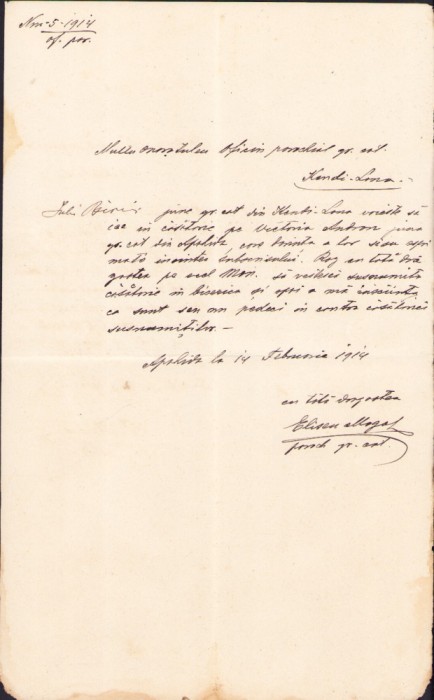 Nro 5-1914
of. par.
Multu onoratului Oficiu parochial gr. cat.
Kendi-Lona
june gr. cat din Kendi-Lona voieste să
iae in căsătorie pe Victoria Andron juna
gr. cat din Apahida, care dorinta a lor si-au espri
mată inaintea subscrisului. Rog cu totă dra
gostea pe on. Mon. să vestesci susnumita
căsătorie in biserica si apoi a mă insciinta
ca sunt seu nu pedeci in contra căsătoriei
susnumitilor. —
Apahida la 14 Februarie 1914
cu totă dragostea
Eliseu
paroch gr. cat.